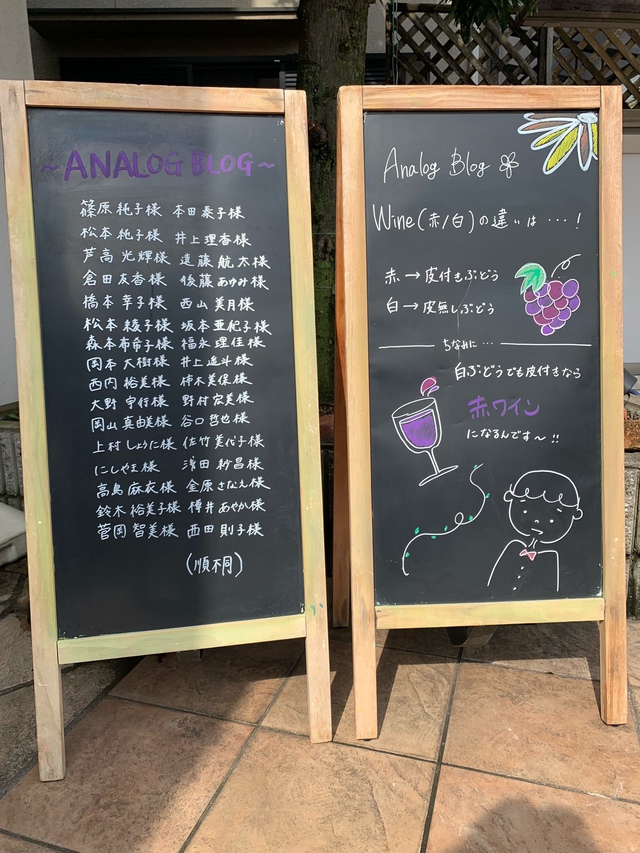 ~ANALOG BLOG~
篠原 純子様 本田 泰子様
松本 純子様 井上 理香様
芦高 光輝様 遠藤 航太様
倉田 友香様 後藤 あゆみ様
橋本 幸子様 西山 美月様
松本 綾子様 坂本 亜紀子様
森本 布希子様 福永 理佳様
岡本 大樹様 井上 進斗様
西内 裕美様 柿木 美保様
大野 宇伶様 野村 宏美様
岡山 真由美様 谷口 哲也様
上村 しょうに様 佐竹 美代子様
にしやま様 濱田 紗昌様
高島 麻衣様 金原 さなえ様
鈴木 裕美子様 樽井 あやか様
菅岡 智美様 西田 則子様
(順不同)
Analog Blog
Wine(赤/白)の違いは…!
赤→皮付きぶどう
白→皮無しぶどう
ちなみに…
白ぶどうでも皮付きなら
赤ワイン
になるんです〜!!